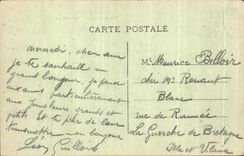 CARTE POSTALE
mercredi, cher ami
je te souhaite un
grand bonjour, je pense
aux amis particulièrement
aux Jours leurs grands et
petits. Et te prie de leur
transmettre mon bonjour
Léon Guillard
Mr Maurice Belloir
chez Mr Renault
Blanc
rue de Rannée
La Guerche de Bretagne
Ille et Vilaine